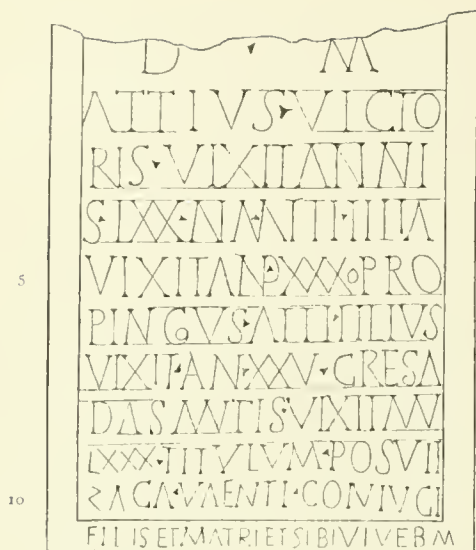 D · M
ATTIVS·VICTO
RIS·VIXITANNI
S·LXX· FILIA
5 VIXITANPXXXPRO
PINQVS·ATTI·FILIVS
VIXIT·AN·XXV·CRESA
DASANTIS·VIXITAN
LXXX·TITVLVM·POSVIT
10 CONIVGI
FILISETMATRIETSIBIVIVE